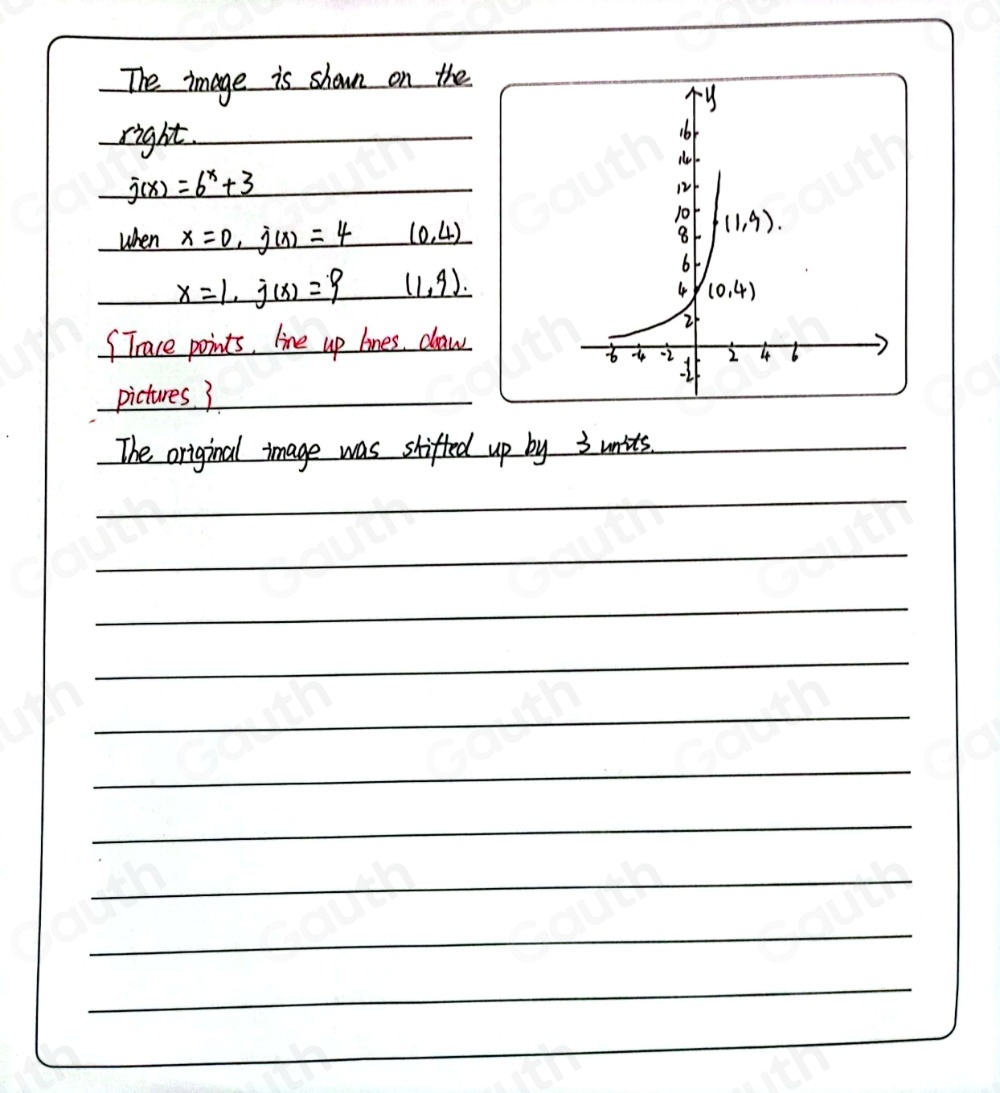 The image is shown on the
right.
j(x) = 6ˣ + 3
when x = 0, j(x) = 4 (0,4)
x = 1, j(x) = 9 (1,9).
{Trace points, line up lines, draw
pictures}
The original image was shifted up by 3 units.
y
16
14
12
10
(1,9).
8
6
4 (0,4)
2
-6 -4 -2 2 4 6
-2
Gauth